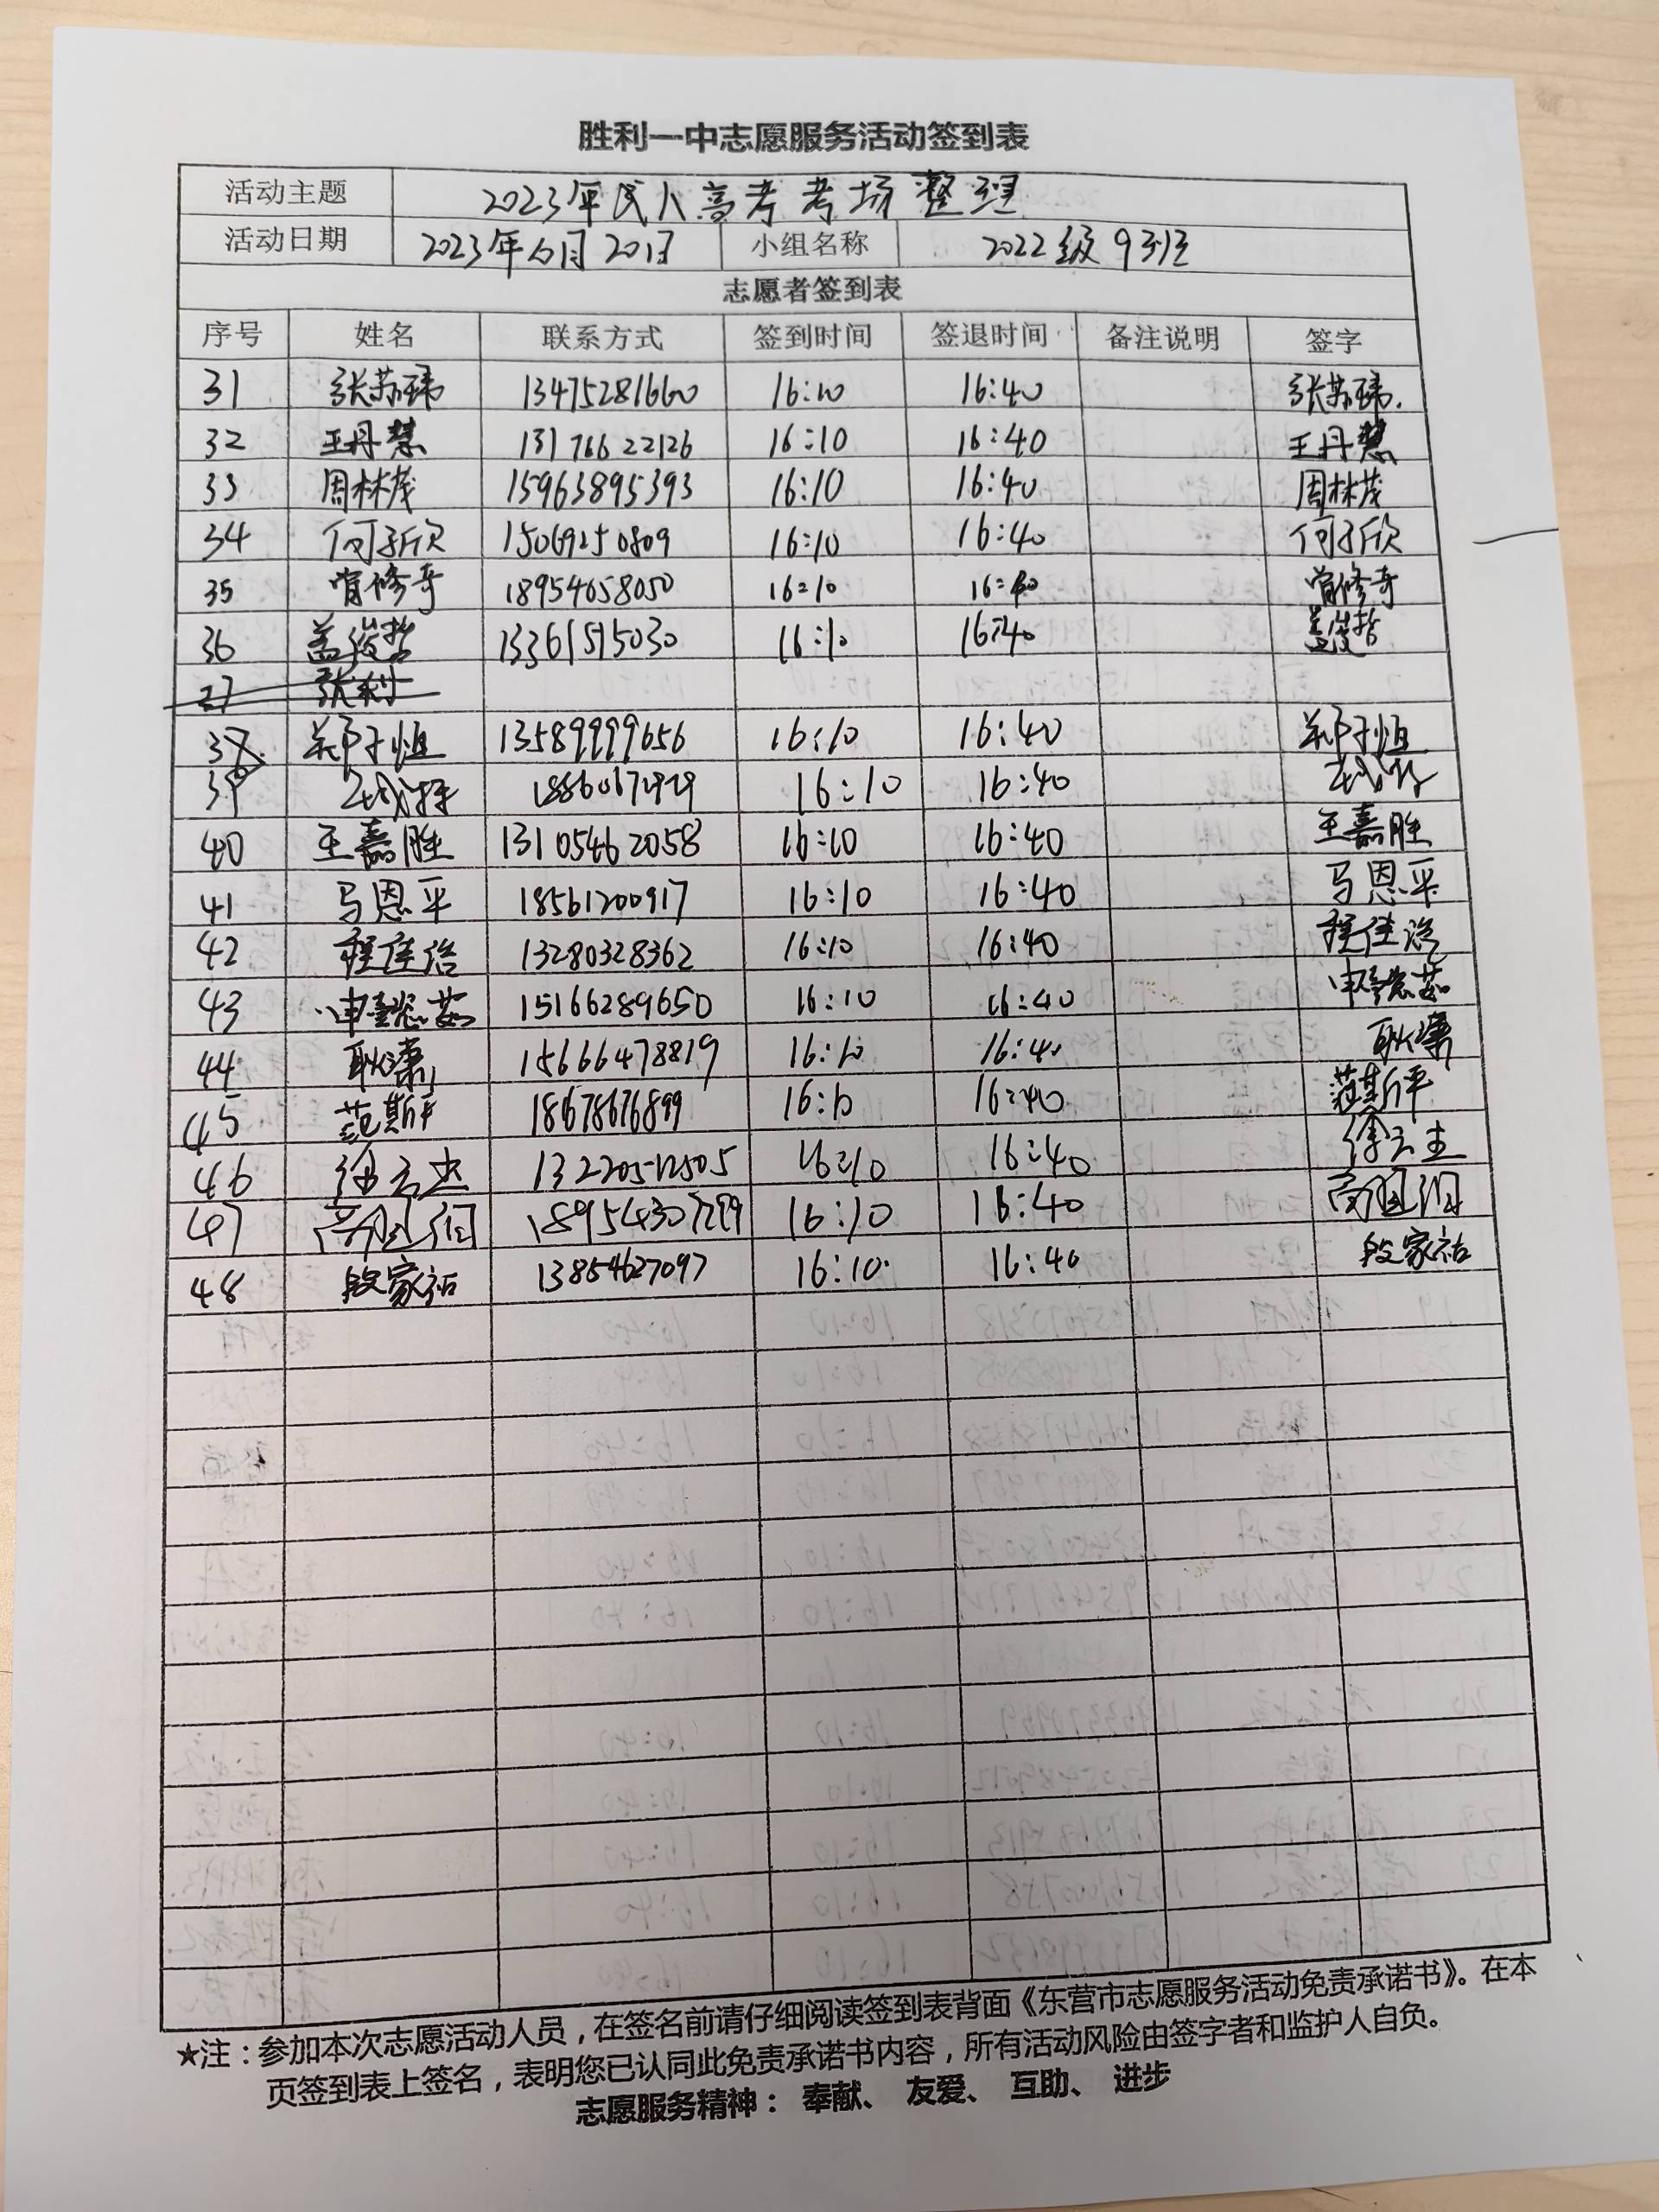 胜利一中志愿服务活动签到表
活动主题 2023年成人高考考场整理
活动日期 2023年6月20日 小组名称 2022级9班
志愿者签到表
序号 姓名 联系方式 签到时间 签退时间 备注说明 签字
31 张苏玮 13475281660 16:10 16:40 张苏玮
32 王丹慧 13176622126 16:10 16:40 王丹慧
33 周林茂 15963895393 16:10 16:40 周林茂
34 何子欣 15069250809 16:10 16:40 何子欣
35 肖修奇 18954658050 16:10 16:40 肖修奇
36 盖俊哲 13361515030 16:10 16:40 盖俊哲
37 郑子恒 13589999656 16:10 16:40 郑子恒
39 16:10 16:40
40 王嘉胜 13105462058 16:10 16:40 王嘉胜
41 马恩平 18561200917 16:10 16:40 马恩平
42 程佳浩 13280328362 16:10 16:40 程佳浩
43 15166289650 16:10 16:40
44 耿潇 15666478819 16:10 16:40 耿潇
45 范斯平 18678676899 16:10 16:40 范斯平
46 徐云杰 13220512505 16:10 16:40 徐云杰
47 16:10 16:40
48 段家祐 13854627097 16:10 16:40 段家祐
★注：参加本次志愿活动人员，在签名前请仔细阅读签到表背面《东营市志愿服务活动免责承诺书》。在本
页签到表上签名，表明您已认同此免责承诺书内容，所有活动风险由签字者和监护人自负。
志愿服务精神： 奉献、 友爱、 互助、 进步